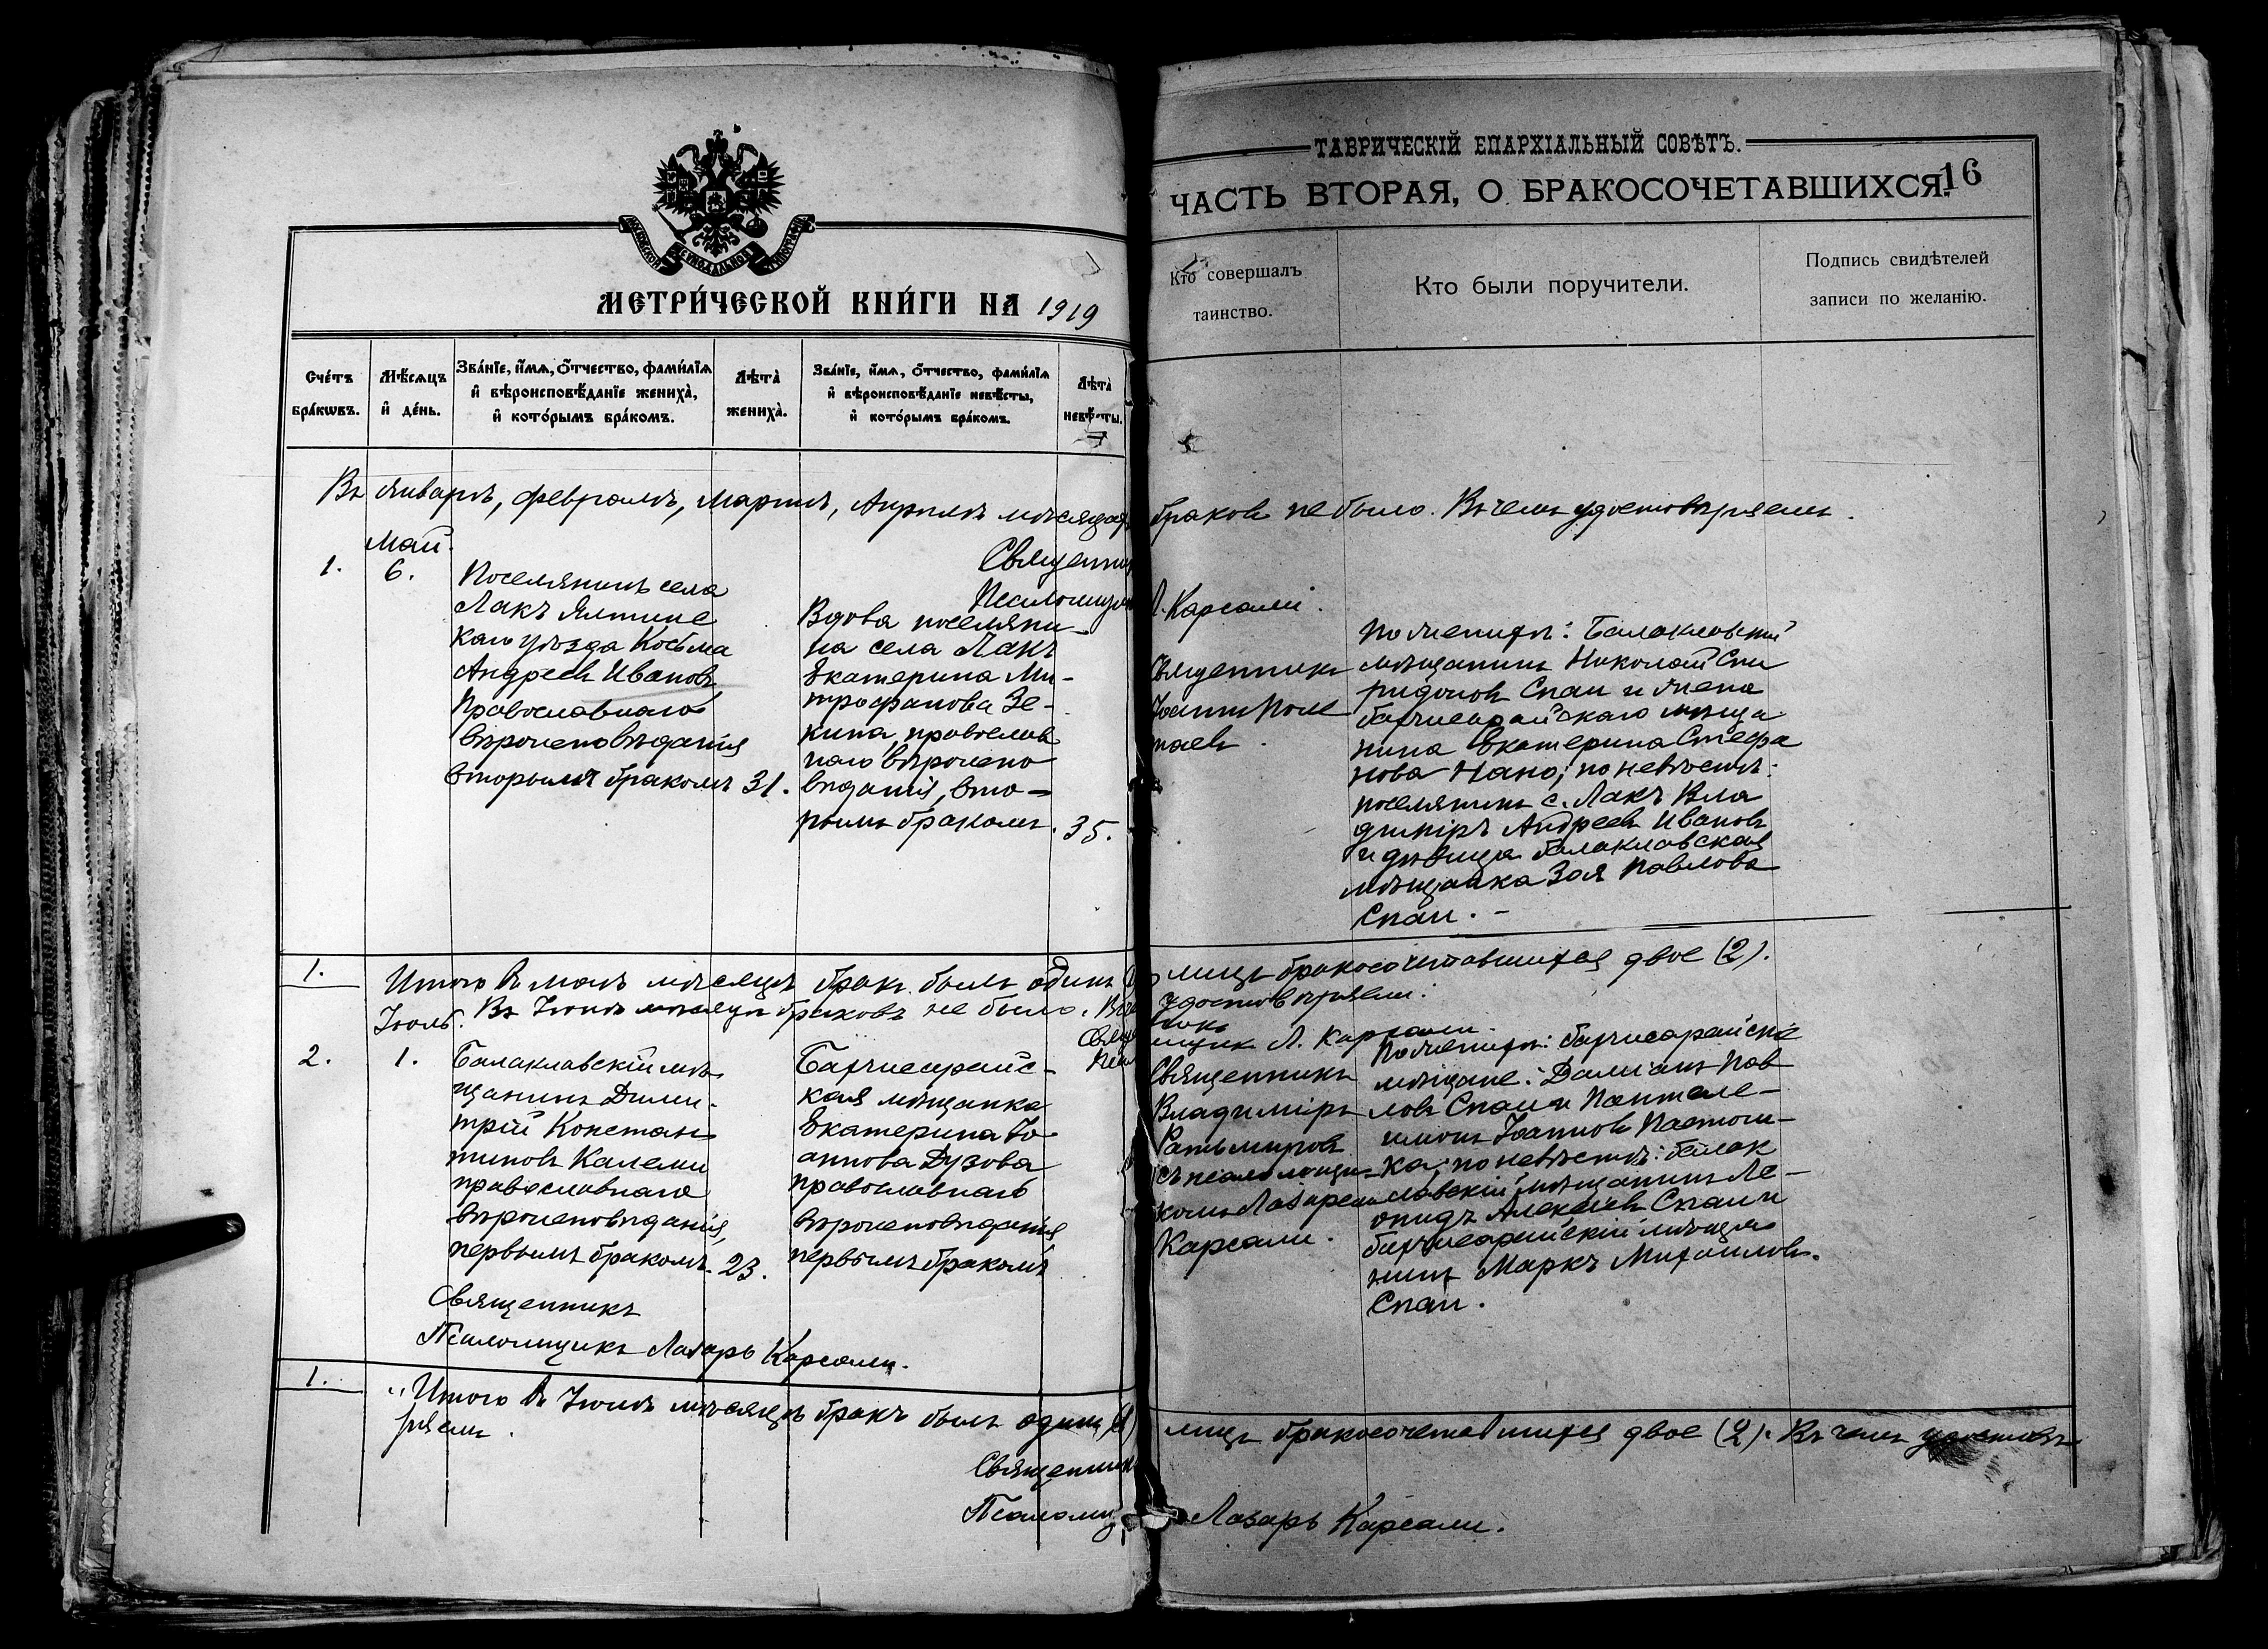 МОСКОВСКОЙ СѴНОДАЛЬНОЙ ТИПОГРАФІИ
МЕТРИ́ЧЕСКОЙ КНИ́ГИ НА 1919
Сче́тъ бра́кѡвъ.
Мѣ́сяцъ и҆ де́нь.
Зва́нїе, и҆́мѧ, ѻ҆́тчество, фами́лїѧ
и҆ вѣроисповѣ́данїе жениха̀,
и҆ кото́рымъ бра́комъ.
Лѣта̀ жениха̀.
Зва́нїе, и҆́мѧ, ѻ҆́тчество, фами́лїѧ
и҆ вѣроисповѣ́данїе невѣ́сты,
и҆ кото́рымъ бра́комъ.
Лѣта̀ невѣ́сты.
ТАВРИЧЕСКІЙ ЕПАРХІАЛЬНЫЙ СОВѢТЪ.
ЧАСТЬ ВТОРАЯ, О БРАКОСОЧЕТАВШИХСЯ.
16
Кто совершалъ
таинство.
Кто были поручители.
Подпись свидѣтелей
записи по желанію.
Въ Январѣ, Февралѣ, Мартѣ, Апрѣлѣ мѣсяцахъ браковъ не было. Въ чемъ удостовѣряемъ.
Священник
Псаломщик Л. Карсали.
Май.
1.
6.
Поселянинъ села
Лакъ Ялтинс
каго уѣзда Косьма
Андреевъ Ивановъ
Православнаго
вѣроисповѣданія
вторымъ бракомъ
31.
Вдова поселяни-
на села Лакъ
Екатерина Ми-
трофанова Зе-
кина, православ
наго вѣроиспо-
вѣданія, вто-
рымъ бракомъ.
35.
Священникъ
Іоаннъ
По женихѣ: Балаклавскій
мѣщанинъ Николай Спи
ридоновъ Спаи и жена
бахчисарайскаго мѣща
нина Екатерина Стефа
нова Нано; по невѣстѣ:
поселянинъ с. Лакъ Вла
димiръ Андреевъ Ивановъ
и дѣвица балаклавская
мѣщанка Зоя Павлова
Спаи. -
1.
Итого въ маѣ мѣсяцѣ бракъ былъ одинъ (1) лицъ бракосочетавшихся двое (2).
Въ Іюнѣ мѣсяцѣ браковъ не было. В че удостовѣряемъ:
Л. Карсали.
Іюль.
2.
1.
Балаклавскій мѣ
щанинъ Дими-
трій Констан
тиновъ Калеми
православнаго
вѣроисповѣданія,
первымъ бракомъ
23.
Бахчисарайс-
кая мѣщанка
Екатерина Іо-
аннова Дузова
православнаго
вѣроисповѣданія
первымъ бракомъ
Священникъ
Владимiръ
съ псаломщи-
комъ Лазаремъ
Карсали.
По женихѣ: бахчисарайскіе
мѣщане: Даміанъ Пав
ловъ Спаи и Пантеле-
имонъ Іоанновъ
ка; по невѣстѣ: балак
лавскій мѣщанинъ Ле-
онидъ Алексѣевъ Спаи и
бахчисарайскій мѣща
нинъ Маркъ Михаиловъ
Спаи.
Священникъ
Псаломщикъ Лазарь Карсали.
1.
Итого въ Іюлѣ мѣсяцѣ бракъ былъ одинъ (1) лицъ бракосочетавшихся двое (2). Въ чемъ удостовѣ
ряемъ.
Священник
Псаломщ Лазарь Карсали.